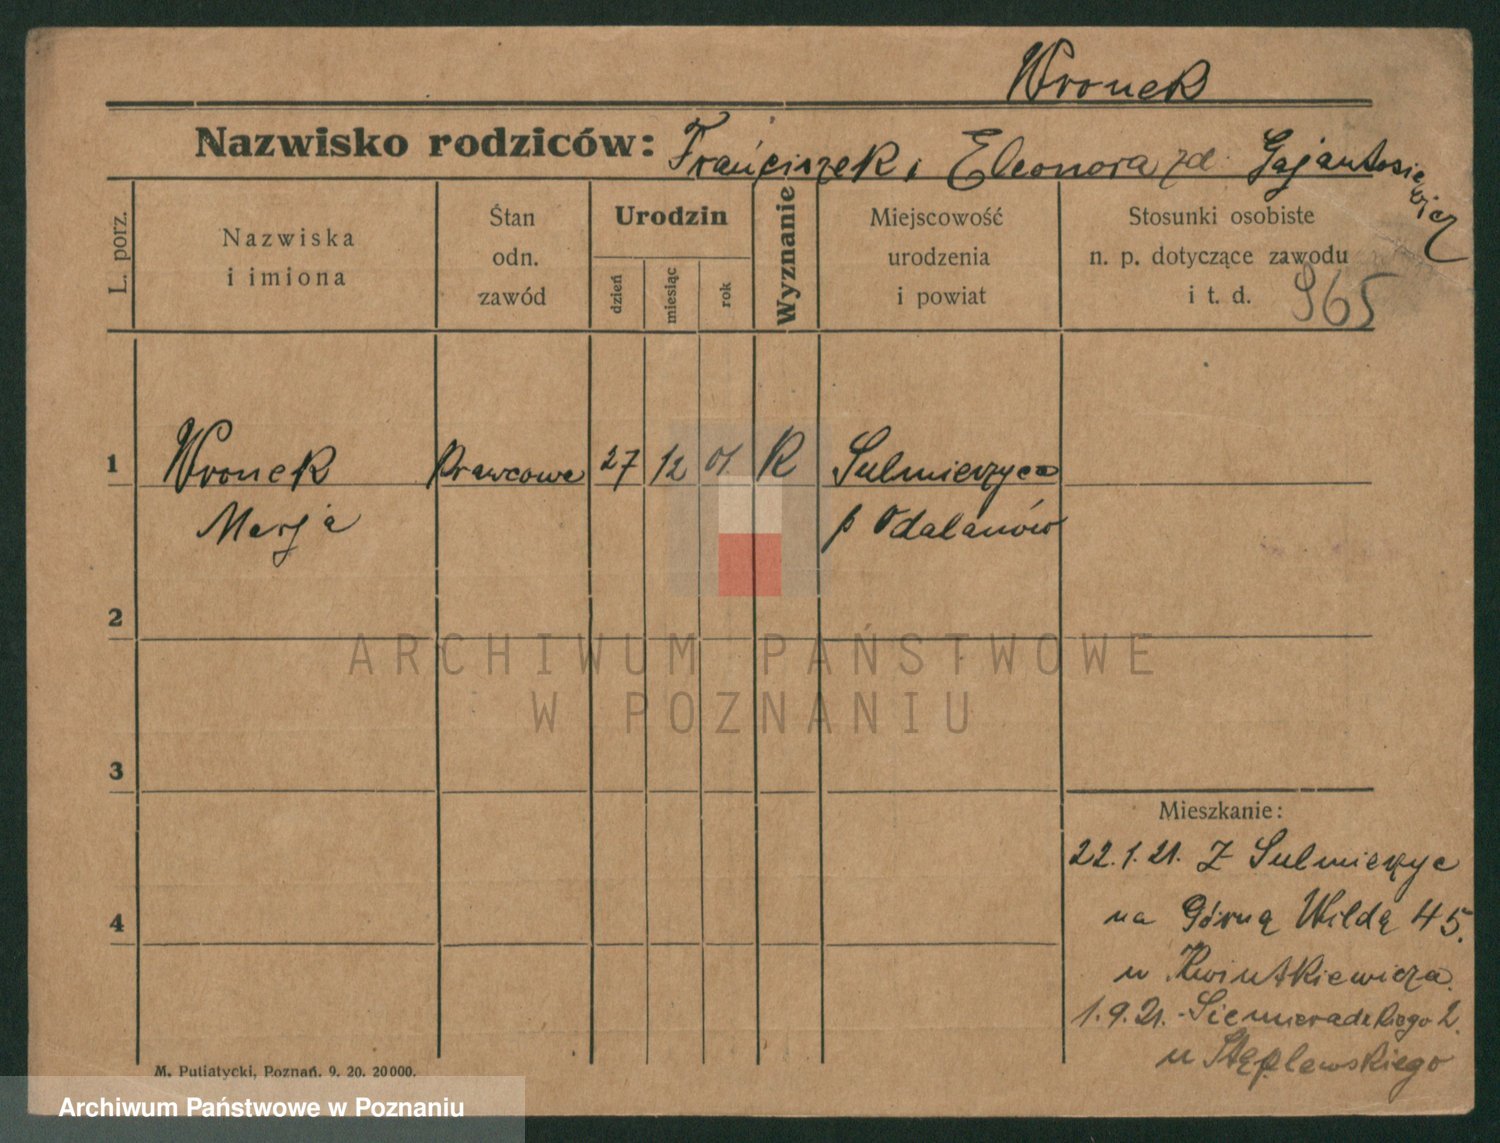 Wronek
Nazwisko rodziców: Franciszek, Eleonora zd. Gajantosiewicz
L. porz.
Nazwiska
i imiona
Stan
odn.
zawód
Urodzin
dzień
miesiąc
rok
Wyznanie
Miejscowość
urodzenia
i powiat
Stosunki osobiste
n. p. dotyczące zawodu
i t. d.
965
1 Wronek 27 12 01. R Sulmierzyce
Marja p Odalanów
2
3
4
Mieszkanie:
22.1.21. Z Sulmierzyc
na Górną Wildę 45.
u Kwiutkiewicza.
1.9.21. - Siemieradzkiego 2.
u Stęplewskiego
M. Putiatycki, Poznań. 9. 20. 20000.
ARCHIWUM PAŃSTWOWE
W POZNANIU
Archiwum Państwowe w Poznaniu